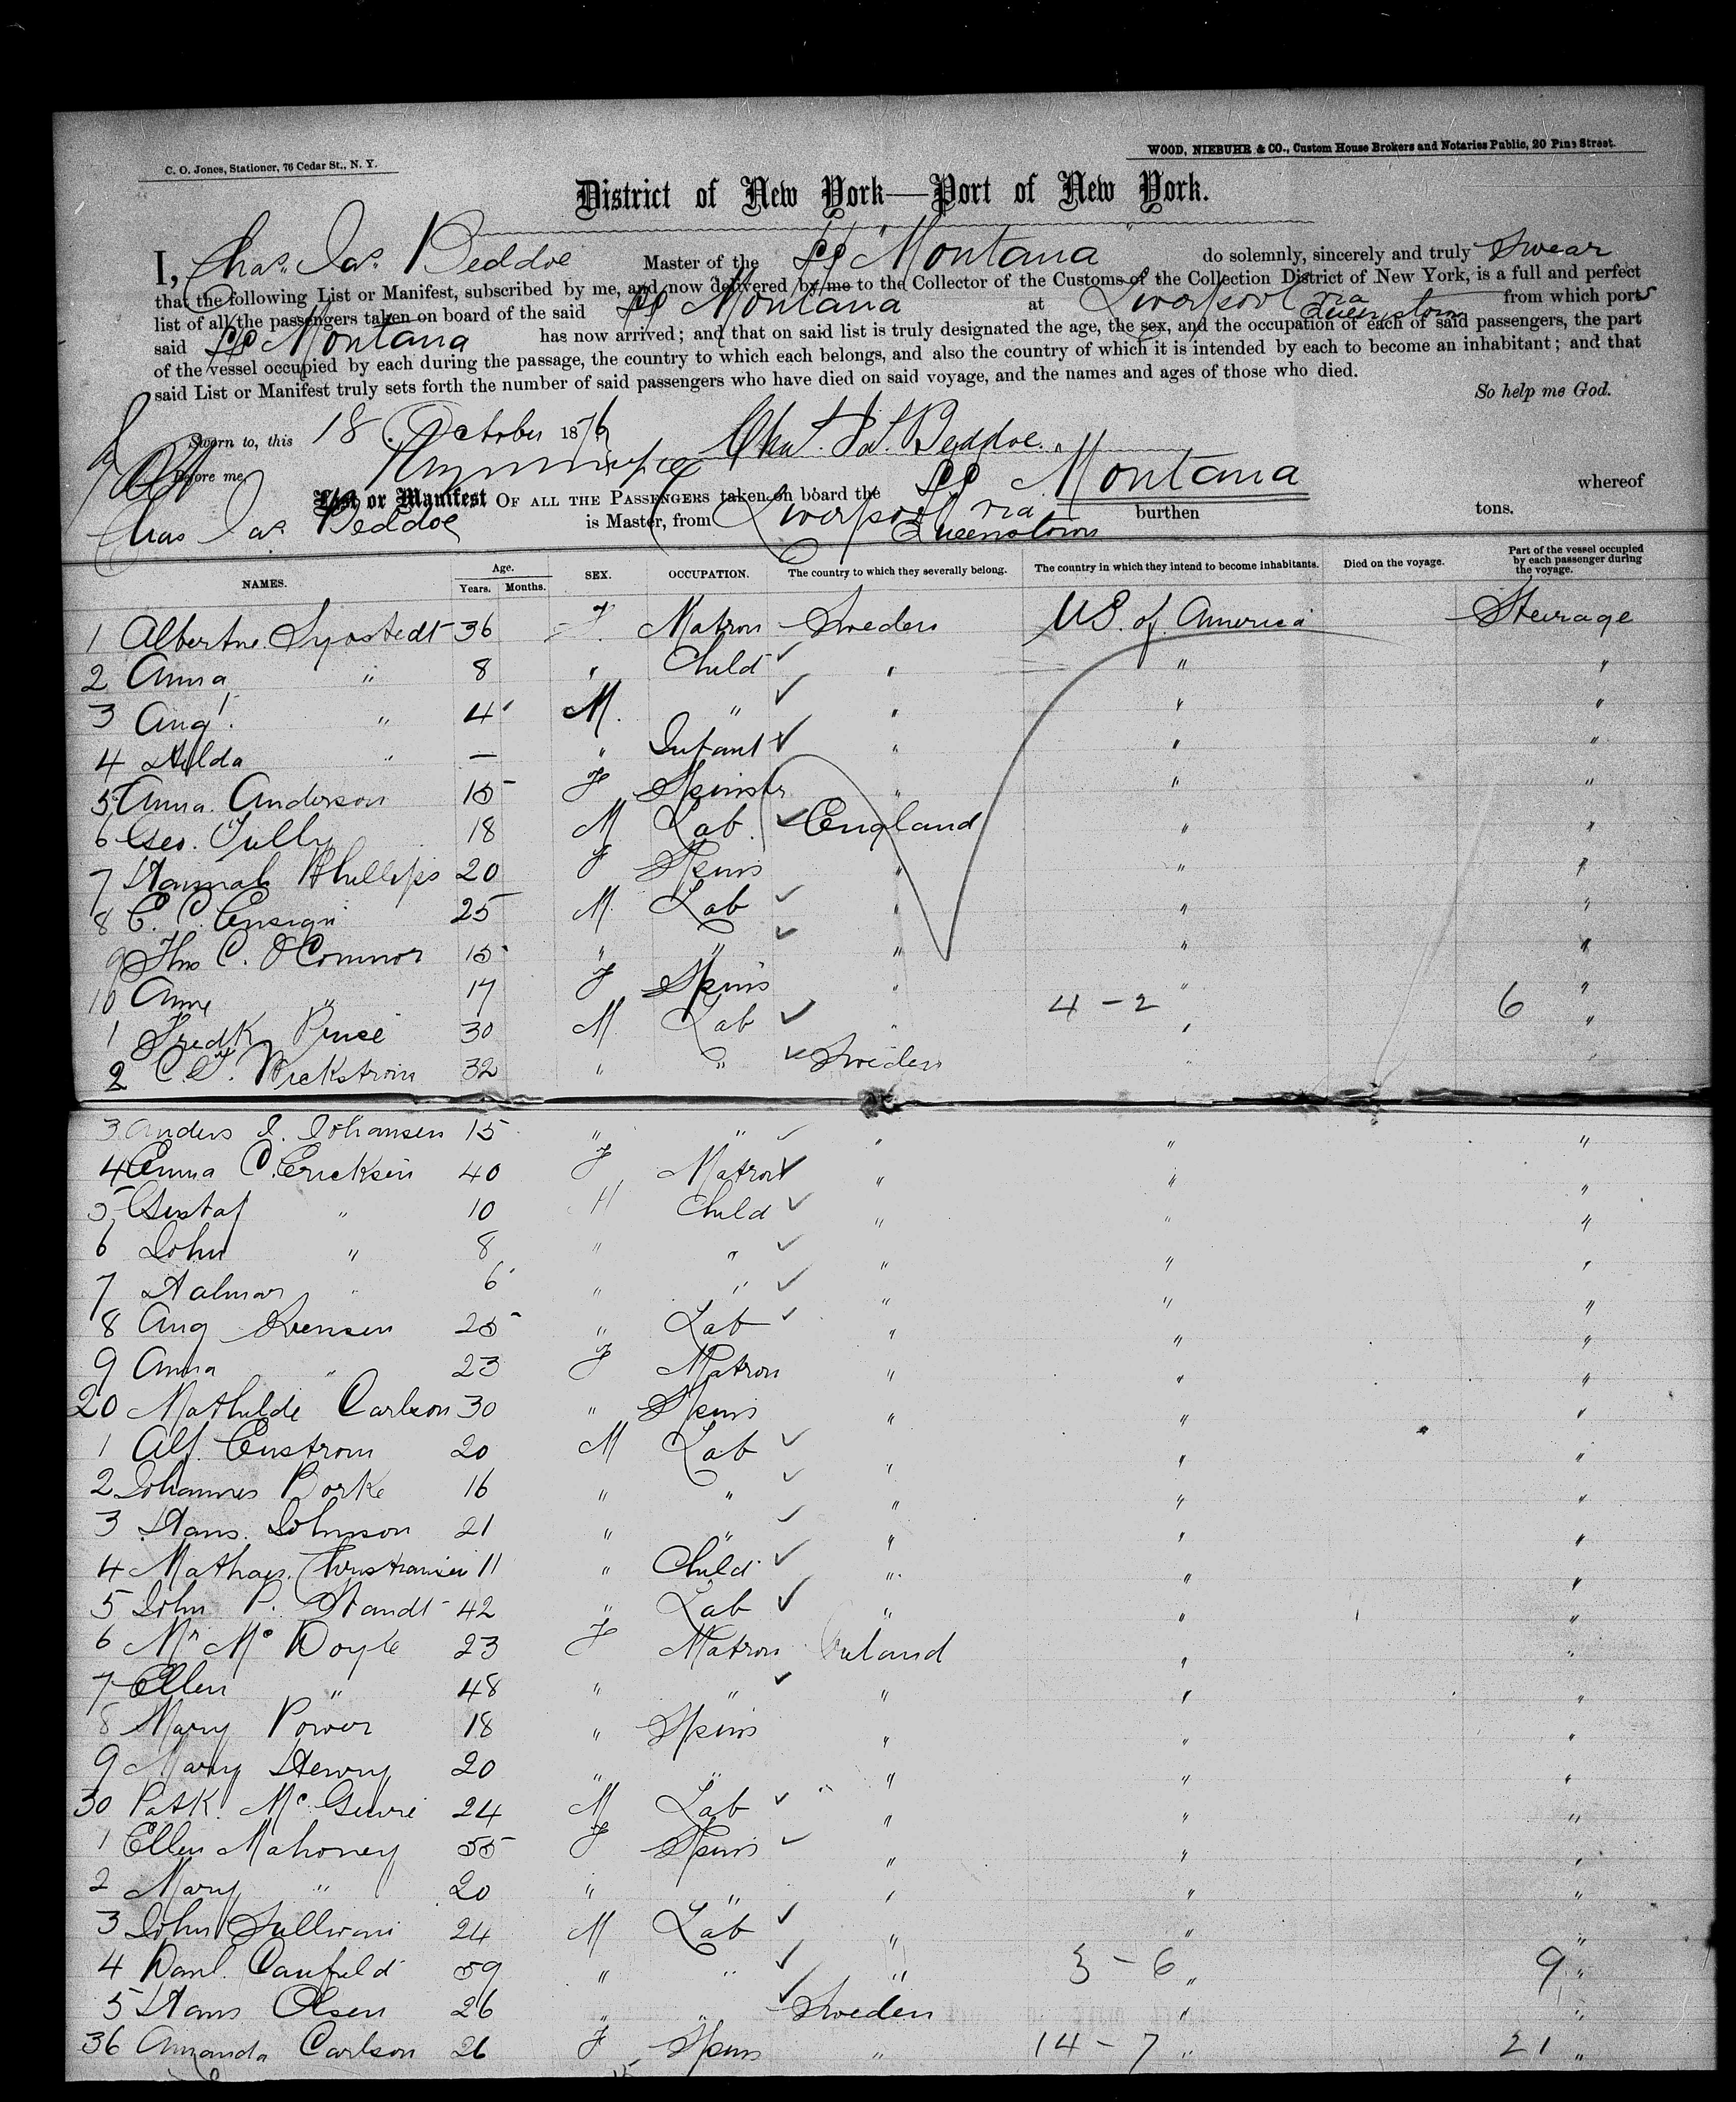 C. O. Jones, Stationer, 76 Cedar St., N. Y.
WOOD, NIEBUHR & CO., Custom House Brokers and Notaries Public, 20 Pine Street.
District of New York—Port of New York.
I, Chas. Jas. Beddoe Master of the SS "Montana" do solemnly, sincerely and truly swear
that the following List or Manifest, subscribed by me, and now delivered by me to the Collector of the Customs of the Collection District of New York, is a full and perfect
list of all the passengers taken on board of the said SS Montana at Liverpool via Queenstown from which ports
said SS Montana has now arrived; and that on said list is truly designated the age, the sex, and the occupation of each of said passengers, the part
of the vessel occupied by each during the passage, the country to which each belongs, and also the country of which it is intended by each to become an inhabitant; and that
said List or Manifest truly sets forth the number of said passengers who have died on said voyage, and the names and ages of those who died.
So help me God.
Sworn to, this 18 October 1876 Chas. Jas. Beddoe
Before me,
List or Manifest OF ALL THE PASSENGERS taken on board the SS Montana whereof
Chas Jas Beddoe is Master, from Liverpool via Queenstown burthen tons.
NAMES. Age. Years. Months. SEX. OCCUPATION. The country to which they severally belong. The country in which they intend to become inhabitants. Died on the voyage. Part of the vessel occupied by each passenger during the voyage.
1 Albertne 36 F. Matron Sweden US. of America Steerage
2 Anna " 8 " Child " " "
3 Augt. " 4 M. " " " "
4 Hilda " — " Infant " " "
5 Anna Anderson 15 F Spinster " " "
6 Geo. Tully 18 M Lab England " "
7 Hannah Phillips 20 F Spins " " "
8 C. C. Ensign 25 M. Lab " " "
9 Thos C. O'Connor 15 " " " " "
10 Anne " 17 F Spins " " "
4 - 2 6
1 Fredk 30 M Lab " " "
2 C. Wickstrom 32 " " Sweden " "
3 Anders J. Johansen 15 " " " " "
4 Emma C. Ericksen 40 F Matron " " "
5 Gustaf " 10 M Child " " "
6 John " 8 " " " " "
7 Halmar " 6 " " " " "
8 Aug Svensen 25 " Lab " " "
9 Anna " 23 F Matron " " "
20 Mathilde Carlson 30 " Spins " " "
1 Alf. Enstrom 20 M Lab " " "
2 Johannes Borke 16 " " " " "
3 Hans Johnson 21 " " " " "
4 Mathas. Christiansen 11 " Child " " "
5 John P. Standt 42 " Lab " " "
6 Doyle 23 F Matron Ireland " "
7 Ellen " 48 " " " " "
8 Mary Power 18 " Spins " " "
9 Mary Henry 20 " " " " "
30 Patk. Mc Guire 24 M Lab " " "
1 Ellen Mahoney 55 F Spins " " "
2 Mary " 20 " " " " "
3 John Sullivan 24 M Lab " " "
4 Danl. Canfield 59 " " " 3 - 6 " 9 "
5 Hans Olsen 26 " " Sweden " "
36 Amanda Carlson 26 F Spins " 14 - 7 " 21 "